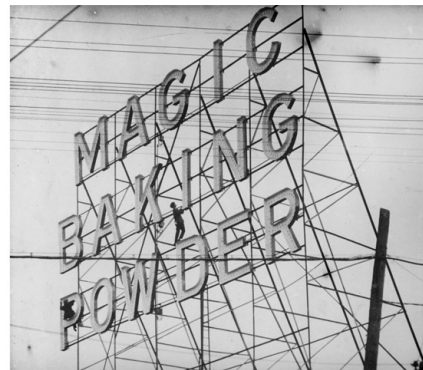 MAGIC
BAKING
POWDER